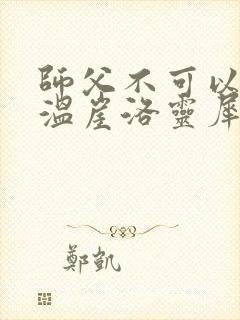 師父不可以
溫崖洛靈犀
鄭凱